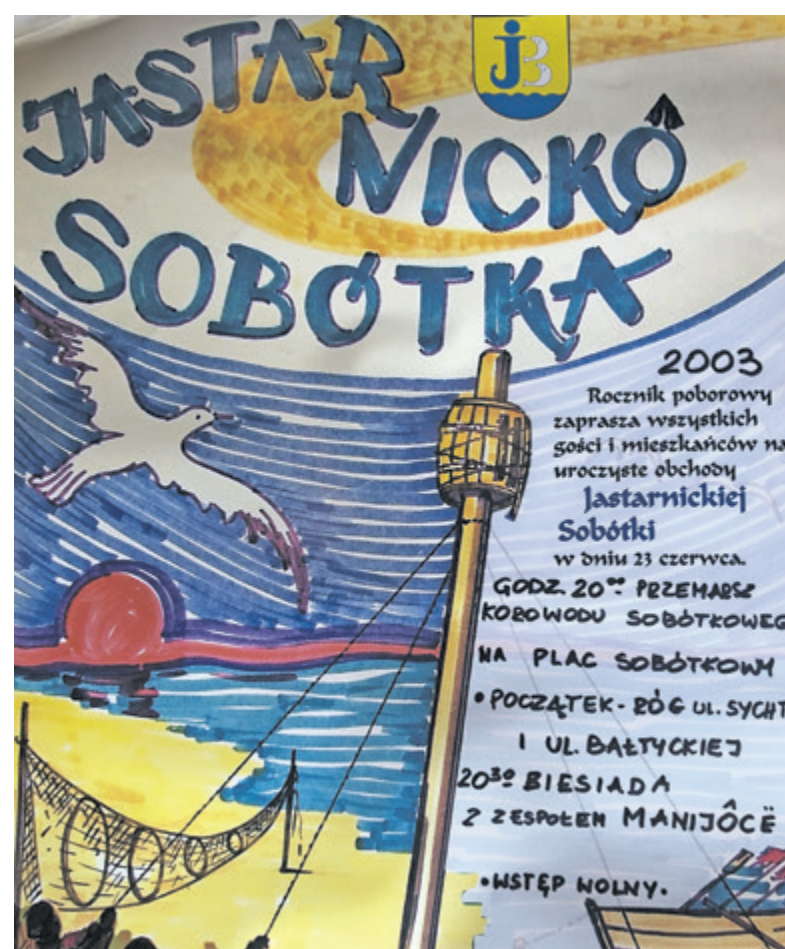 JASTAR
NICKÔ
SOBÓTKA
JB
2003
Rocznik poborowy
zaprasza wszystkich
gości i mieszkańców na
uroczyste obchody
Jastarnickiej
Sobótki
w dniu 23 czerwca.
GODZ. 20⁰⁰ PRZEMARSZ
KOROWODU SOBÓTKOWEG
NA PLAC SOBÓTKOWY
• POCZĄTEK - RÓG UL. SYCHT
I UL. BAŁTYCKIEJ
20³⁰ BIESIADA
Z ZESPOŁEM MANIJÔCË
• WSTĘP WOLNY.